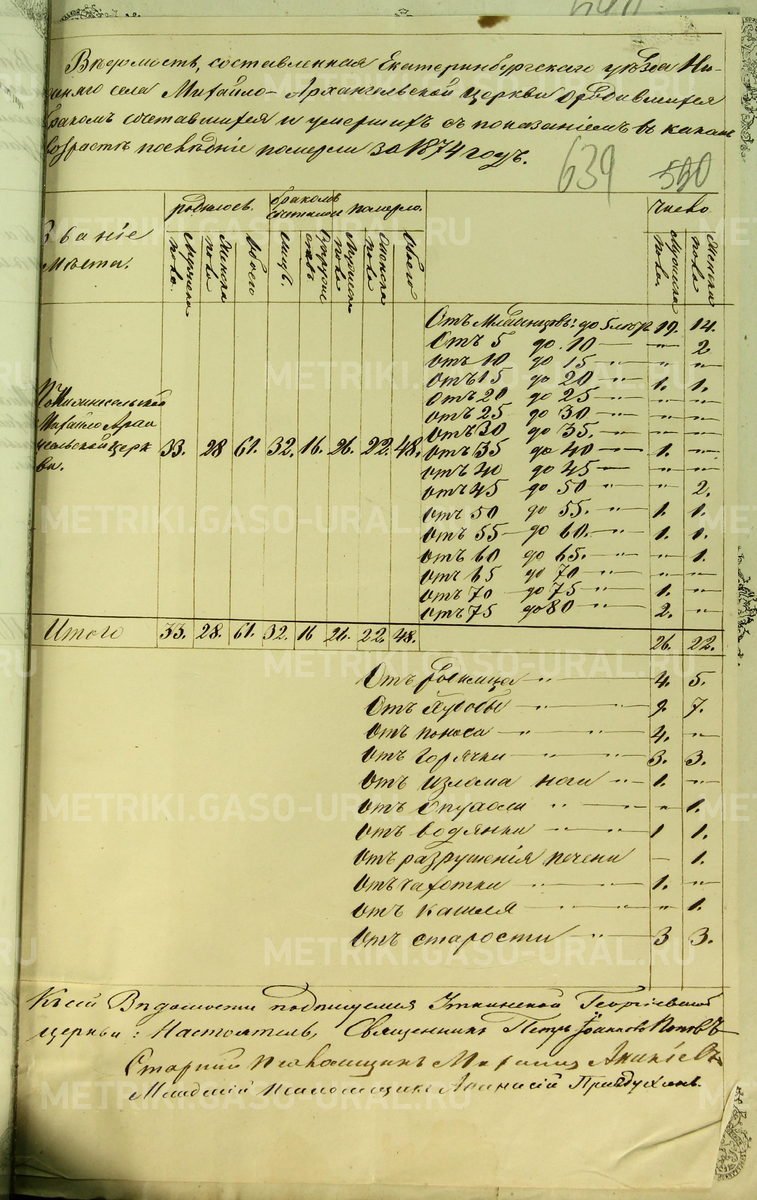 Ведомость, составленная Екатеринбургскаго уезда Ни-
села Михайло-Архангельской церкви о родившихся
браком составшихся и умерших с показанием в каком
возрасте последние померли за 1874 годъ.
639 590
Званіе места.
родилось. браком померло. число
Мужеска пола. Женска пола Обоего Лицъ. Мужеска пола Женска пола Обоего Мужеска пола. Женска пола
Отъ Младенцовъ до 5 летъ 19. 14.
Отъ 5 до 10 — " 2
отъ 10 до 15 — " "
отъ 15 до 20 " 1. 1.
отъ 20 до 25 — " "
отъ 25 до 30 — " "
отъ 30 до 35. — " "
Михайло Архан-
гельской церк-
ви. 33. 28 61. 32. 16. 26. 22. 48.
отъ 35 до 40 — 1. "
отъ 40 до 45 — " "
отъ 45 до 50 " " 2.
отъ 50 до 55. " 1. 1.
отъ 55 до 60. " 1. 1.
отъ 60 до 65. " " 1.
отъ 65 до 70 " " "
отъ 70 до 75 " 1. "
отъ 75 до 80 " 2. "
Итого 33. 28. 61. 32. 16 26. 22. 48. 26. 22.
Отъ родимца " 4. 5.
Отъ " 9. 7.
отъ поноса — 4. "
отъ горячки 3. 3.
отъ излома ноги " 1. "
отъ опухоли " " 1.
отъ водянки " 1 1.
отъ разрушенія печени — 1.
отъ чахотки " 1. "
отъ кашля " " 1.
отъ старости " 3 3.
К сей Ведомости подписуемся Уткинской Георгіевской
церкви: Настоятель, Священникъ Петръ Іоанновъ Поповъ
Старшій Псаломщикъ
Младшій Псаломщикъ Афанасій
METRIKI.GASO-URAL.RU